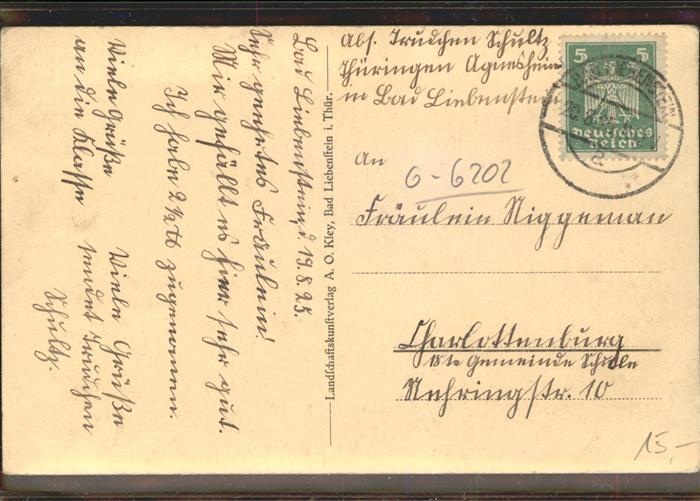 Bad Liebenstein, d 19.8.25.
Sehr geehrtes Fräulein!
Mir gefällt es hier sehr gut.
Ich habe 2½ ℔ zugenommen.
Viele Grüße
an die Klasse
Viele Grüße
sendet Trudchen
Schultz.
Landschaftskunstverlag A. O. Kley, Bad Liebenstein i. Thür.
Abs. Trudchen Schultz
Thüringen Agnesheim
in Bad Liebenstein
5 5
Deutsches
Reich
An
6-6202
Fräulein Niggeman
Charlottenburg
18te Gemeinde Schule
Nehringstr. 10
15,-